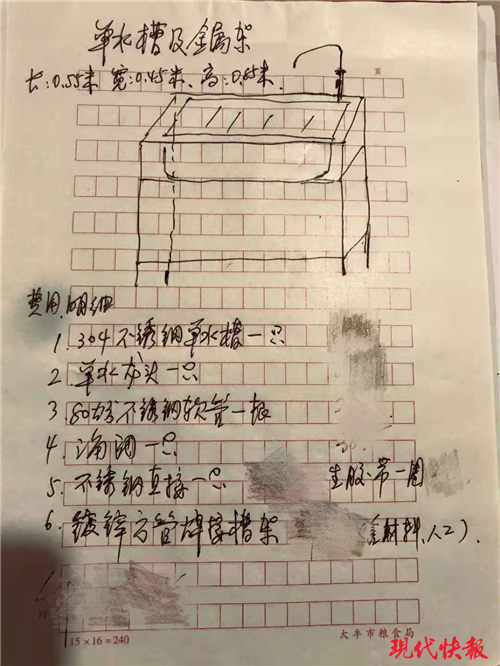 单水槽及金属架
页
长:0.55米 宽:0.45米、高:0.85米.
费用明细
1. 304不锈钢单水槽一只
2 单水龙头一只
3. 80公分不锈钢软管一根
4. 角阀一只
5. 不锈钢直接一只 生胶带一圈
6. 镀锌方管焊接槽架 (含材料、人工).
15×16=240 大丰市粮食局
现代快报